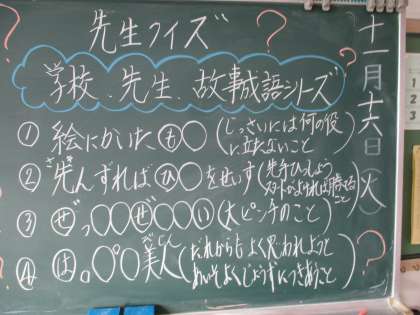 先生クイズ
学校、先生、故事成語シリーズ
① 絵にかいたも○(じっさいには何の役に立たないこと)
② 先んずればひ○をせいす(先手ひっしょうスタートがよければ勝てること)
さき
③ ぜっ○○ぜ○○い(大ピンチのこと)
④ は。○○○美人(だれからもよく思われようとあいそよくじょうずにつきあうこと)
びじん
十一月十六日火